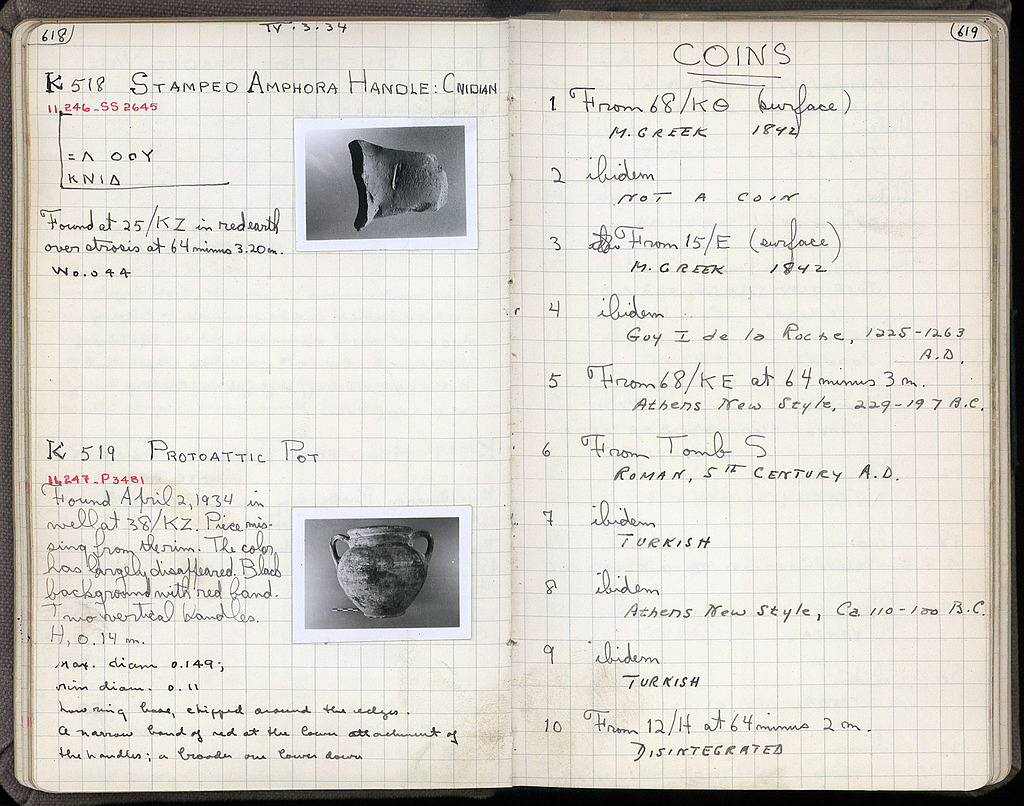 618
IV.3.34
K 518 STAMPED AMPHORA HANDLE: CNIDIAN
11,246-SS 2645
=Λ OOY
KNIΔ
Found at 25/KZ in red earth
over strosis at 64 minus 3.20 m.
W 0.044
K 519 PROTOATTIC POT
11,247-P3481
Found April 2, 1934 in
well at 38/KZ. Piece mis-
sing from the rim. The color
has largely disappeared. Black
background with red band.
Two vertical handles.
H, 0.14 m.
Max. diam 0.149;
rim diam. 0.11
Low ring base, chipped around the edges.
A narrow band of red at the lower attachment of
the handles; a broader one lower down
619
COINS
1 From 68/KΘ (surface)
M. GREEK 1842
2 ibidem
NOT A COIN
3 From 15/E (surface)
M. GREEK 1842
4 ibidem
Guy I de la Roche, 1225-1263
A.D.
5 From 68/KE at 64 minus 3 m.
Athens New Style, 229-197 B.C.
6 From Tomb S
ROMAN, 5TH CENTURY A.D.
7 ibidem
TURKISH
8 ibidem
Athens New Style, Ca. 110-100 B.C.
9 ibidem
TURKISH
10 From 12/H at 64 minus 2 m.
DISINTEGRATED